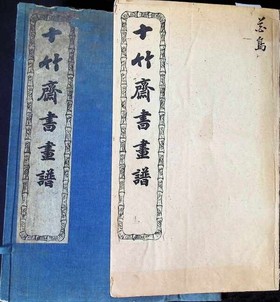 十竹齋書畫譜
十竹齋書畫譜
花鳥